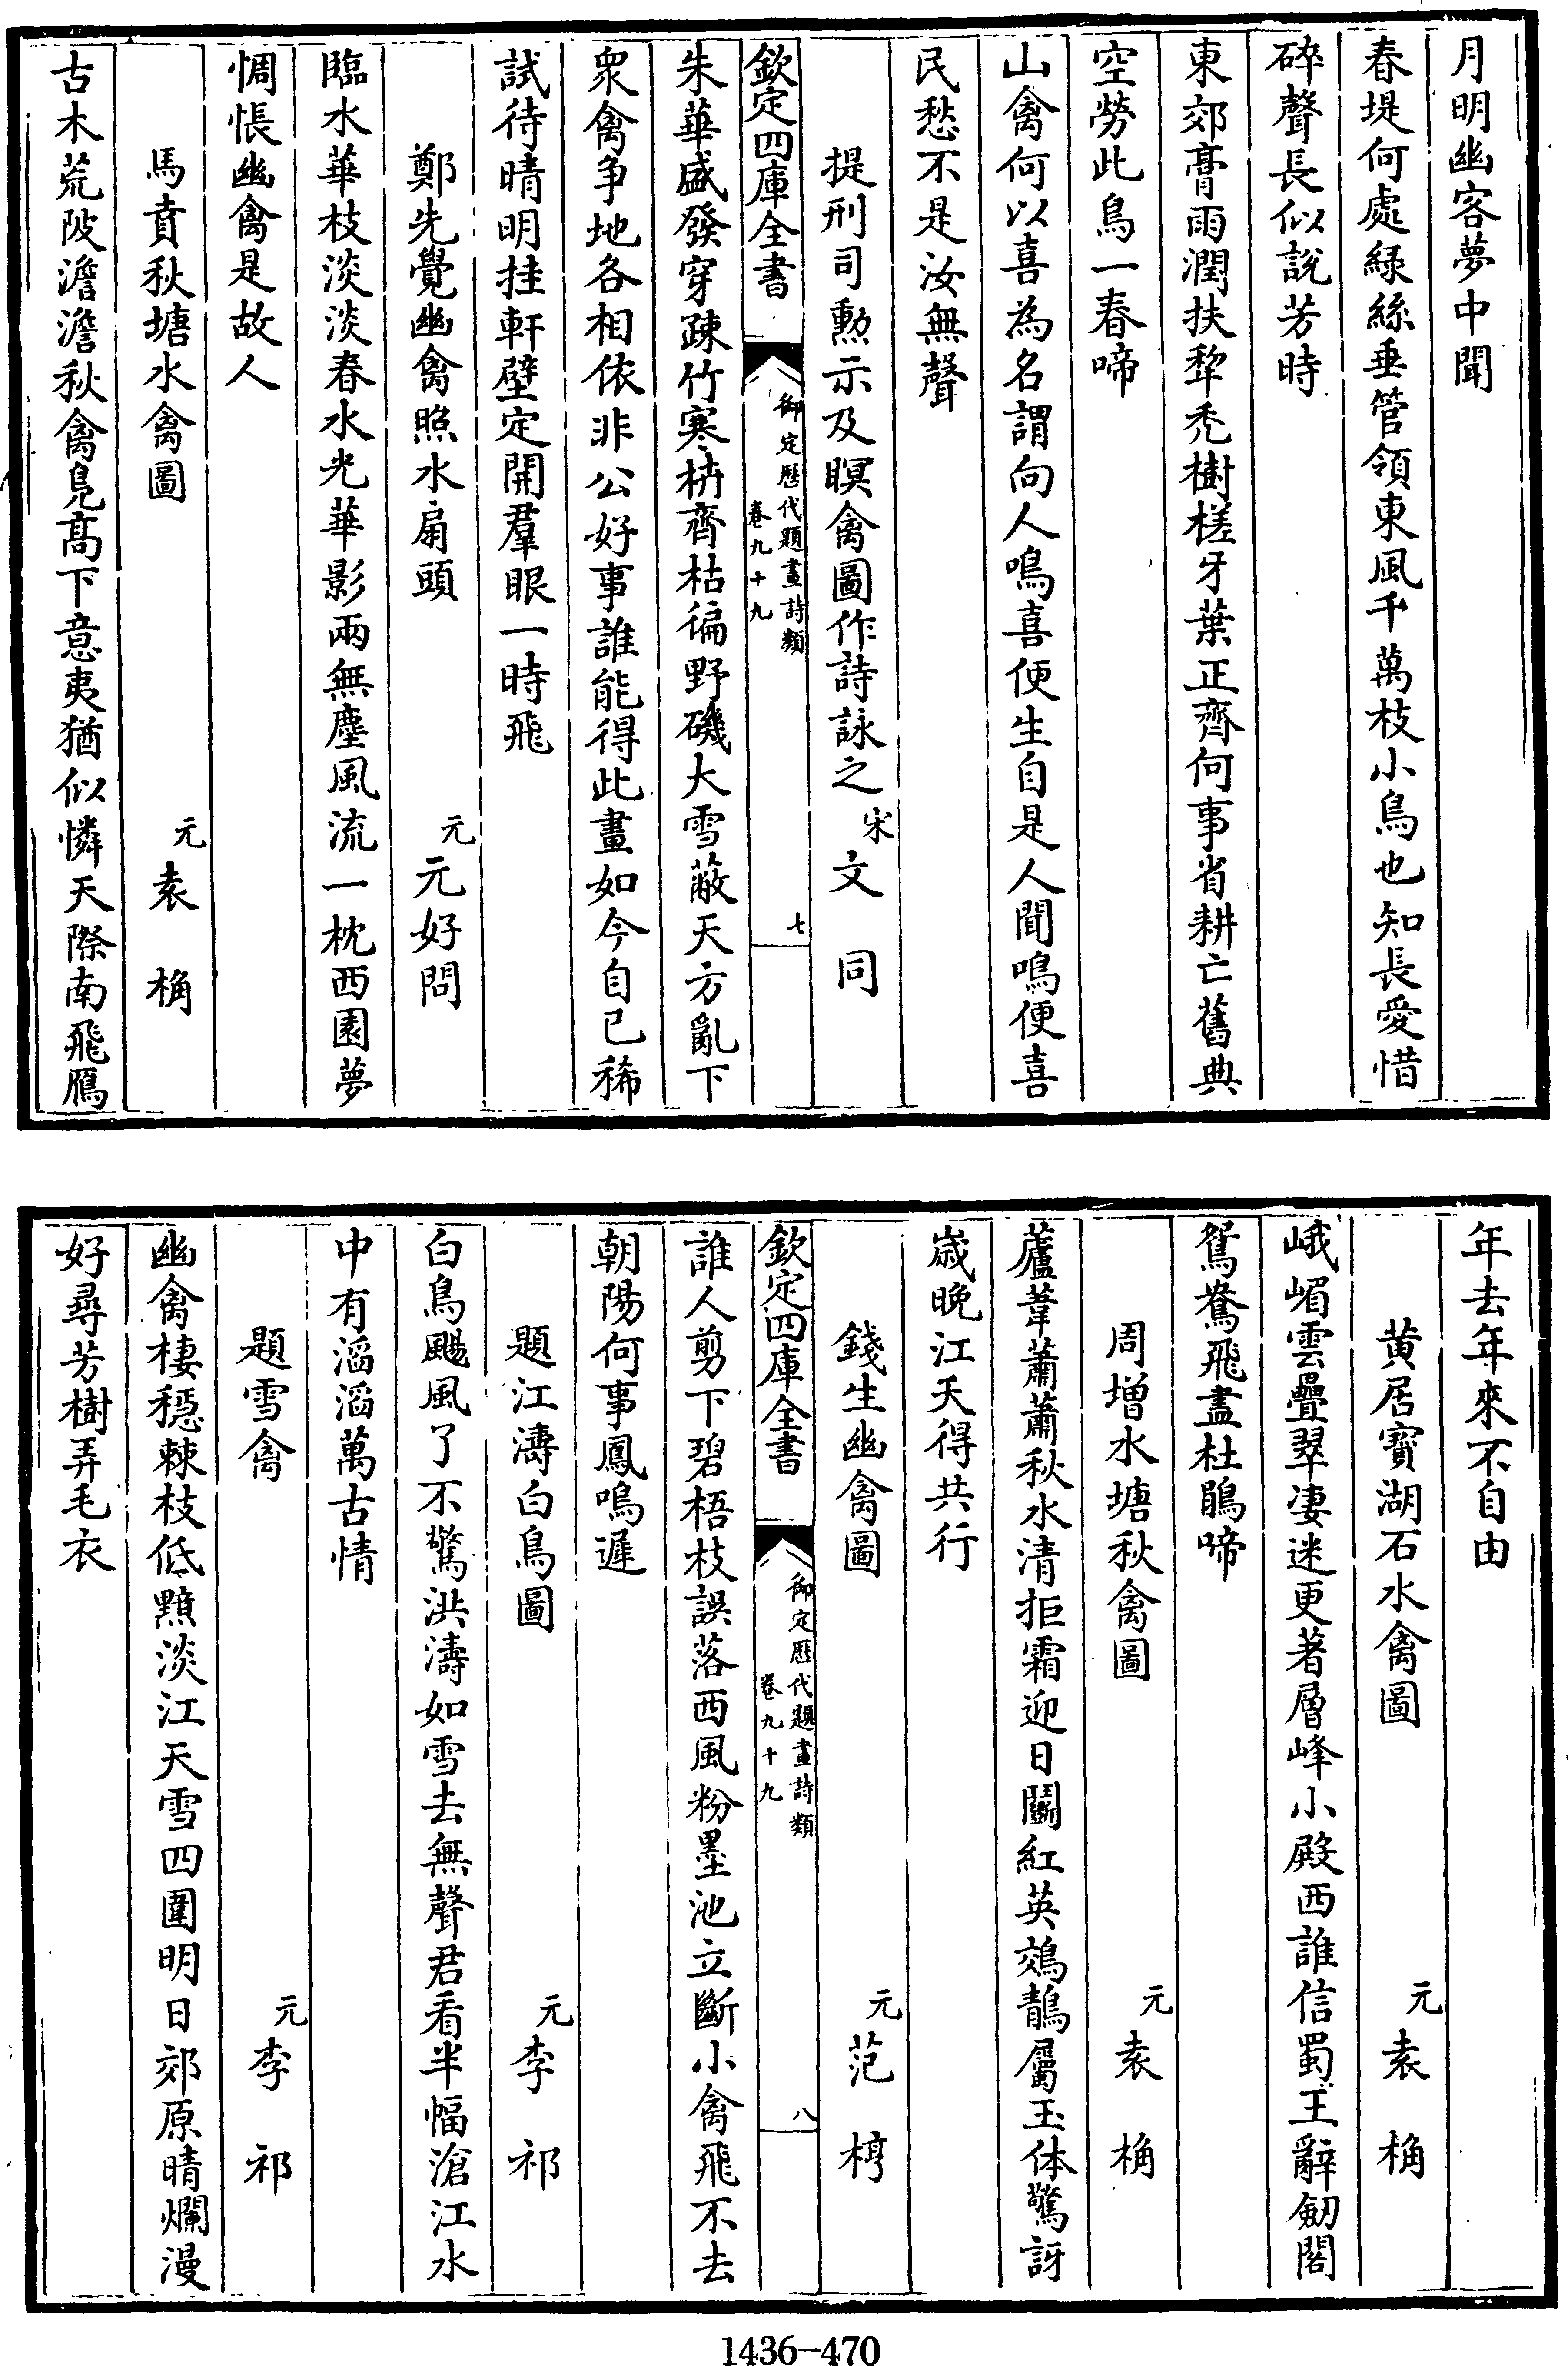 月明幽客夢中聞
春堤何處緑絲垂管領東風千萬枝小鳥也知長愛惜
碎聲長似説芳時
東郊膏雨潤扶犂禿樹槎牙葉正齊何事省耕亡舊典
空勞此鳥一春啼
山禽何以喜為名謂向人鳴喜便生自是人聞鳴便喜
民愁不是汝無聲
提刑司勲示及瞑禽圖作詩詠之 宋 文 同
欽定四庫全書 御定歴代題畫詩類 卷九十九 七
朱華盛發穿疎竹寒枿齊枯徧野磯大雪蔽天方亂下
衆禽争地各相依非公好事誰能得此畫如今自已稀
試待晴明挂軒壁定開羣眼一時飛
鄭先覺幽禽照水扇頭 元 元好問
臨水華枝淡淡春水光華影兩無塵風流一枕西園夢
惆悵幽禽是故人
馬賁秋塘水禽圖 元 袁 桷
古木荒陂澹澹秋禽鳬髙下意夷猶似憐天際南飛鴈
年去年來不自由
黄居寶湖石水禽圖 元 袁 桷
峨嵋雲疊翠凄迷更著層峰小殿西誰信蜀王辭劒閣
鴛鴦飛盡杜鵑啼
周增水塘秋禽圖 元 袁 桷
蘆葦蕭蕭秋水清拒霜迎日鬭紅英鵁鶄屬玉休驚訝
歳晚江天得共行
錢生幽禽圖 元 范 梈
欽定四庫全書 御定歴代題畫詩類 卷九十九 八
誰人剪下碧梧枝誤落西風粉墨池立斷小禽飛不去
朝陽何事鳳鳴遲
題江濤白鳥圖 元 李 祁
白鳥颺風了不驚洪濤如雪去無聲君看半幅滄江水
中有滔滔萬古情
題雪禽 元 李 祁
幽禽棲穏棘枝低黯淡江天雪四圍明日郊原晴爛漫
好尋芳樹弄毛衣
1436-470